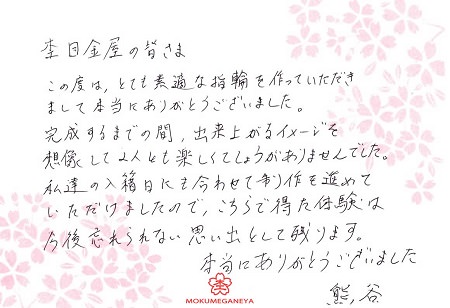 杢目金屋の皆さま
この度は、とても素適な指輪を作っていただき
まして本当にありがとうございました。
完成するまでの間、出来上がるイメージを
想像して2人とも楽しくてしょうがありませんでした。
私達の入籍日にも合わせて制作を進めて
いただけましたので、こちらで得た体験は
今後忘れられない思い出として残ります。
本当にありがとうございました
熊谷
MOKUMEGANEYA